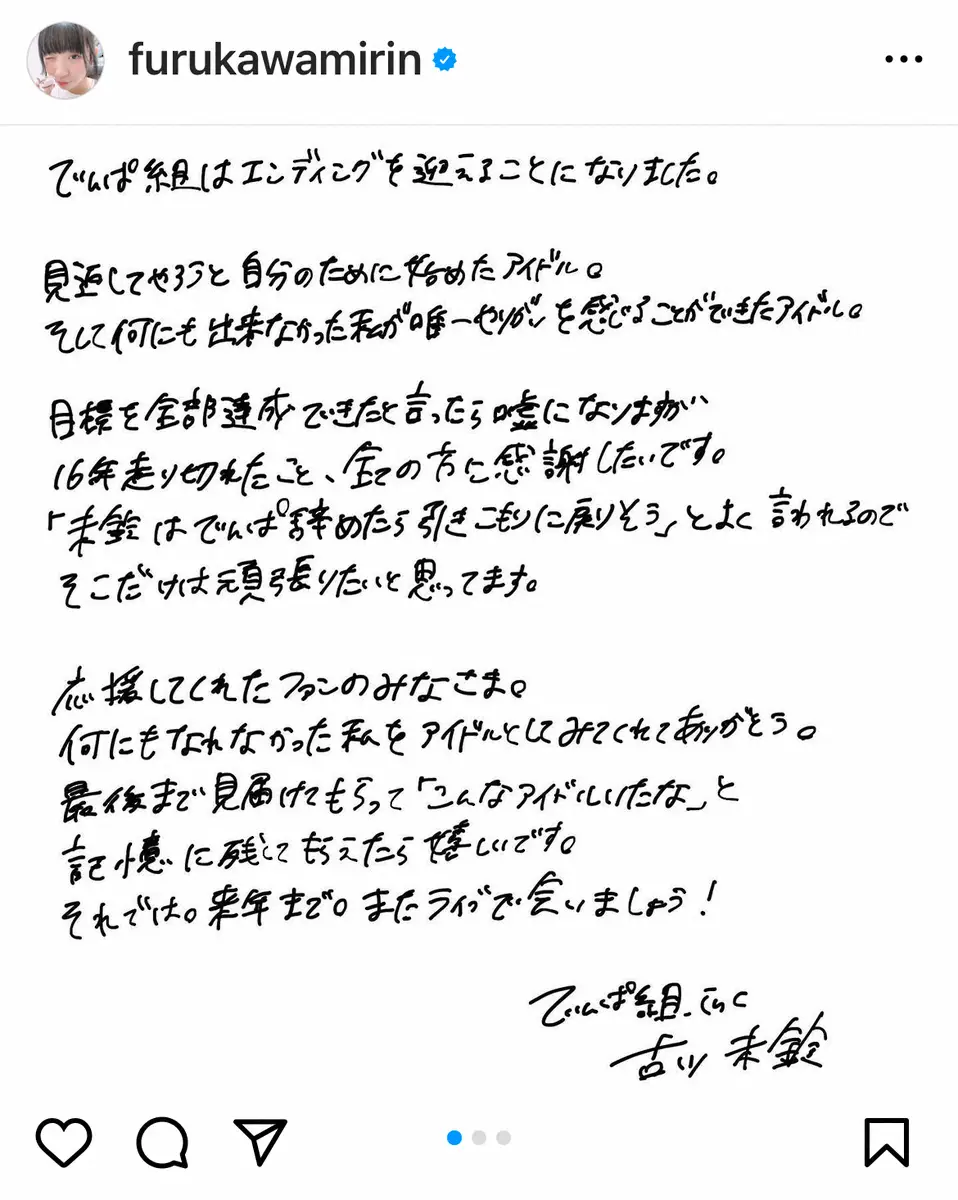 furukawamirin
でんぱ組はエンディングを迎えることになりました。
見返してやろうと自分のために始めたアイドル。
そして何にも出来なかった私が唯一やりがいを感じることができたアイドル。
目標を全部達成できたと言ったら嘘になりますが
16年走り切れたこと、全ての方に感謝したいです。
「未鈴はでんぱ辞めたら引きこもりに戻りそう」とよく言われるので
そこだけは頑張りたいと思ってます。
応援してくれたファンのみなさま。
何にもなれなかった私をアイドルとしてみてくれてありがとう。
最後まで見届けてもらって「こんなアイドルいたな」と
記憶に残してもらえたら嬉しいです。
それでは。来年まで。またライブで会いましょう!
でんぱ組.inc
古川未鈴